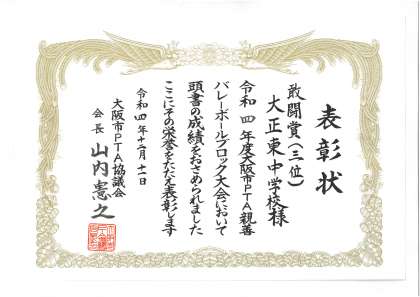 表彰状
敢闘賞(三位)
大正東中学校様
令和四年度大阪市PTA親善
バレーボールブロック大会において
頭書の成績をおさめられました
ここにその栄誉をたたえ表彰します
令和四年十二月十一日
大阪市PTA協議会
会長 山内憲之